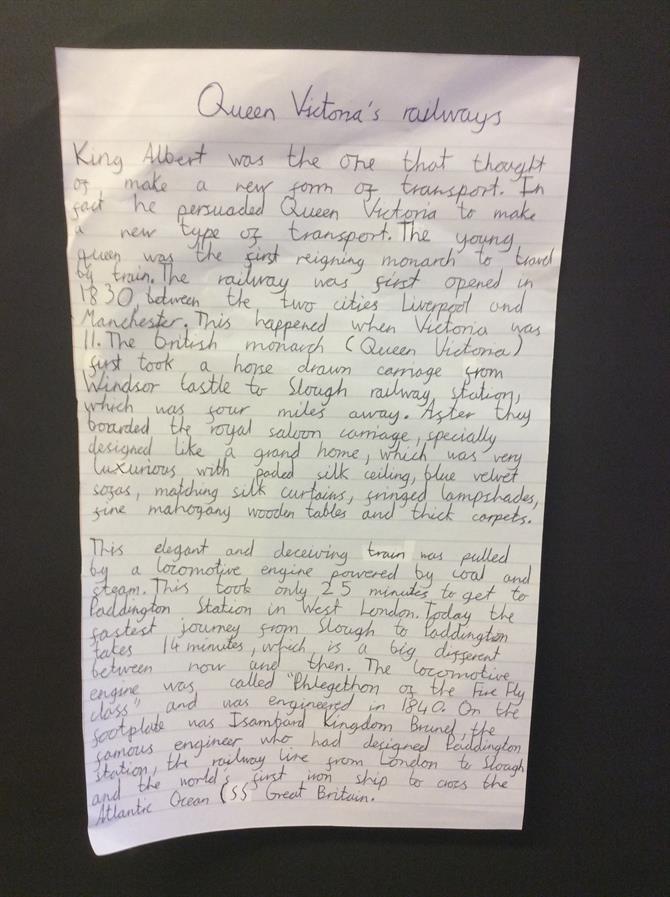 Queen Victoria's railways
King Albert was the one that thought
of, make a new form of transport. In
fact he persuaded Queen Victoria to make
a new type of transport. The young
queen was the first reigning monarch to travel
by train. The railway was first opened in
1830, between the two cities Liverpool and
Manchester. This happened when Victoria was
11. The british monarch (Queen Victoria)
first took a horse drawn carriage from
Windsor Castle to Slough railway station,
which was four miles away. After they
boarded the royal saloon carriage, specially
designed like a grand home, which was very
luxurious with paded silk ceiling, blue velvet
sofas, matching silk curtains, fringed lampshades,
fine mahogany wooden tables and thick carpets.
This elegant and deceiving train was pulled
by a locomotive engine powered by coal and
steam. This took only 25 minutes to get to
Paddington Station in West London. Today the
fastest journey from Slough to Paddington
takes 14 minutes, which is a big different
between now and then. The locomotive
engine was called "Phlegethon of the Fire Fly
class" and was engineered in 1840. On the
footplate was Isambard Kingdom Brunel, the
famous engineer who had designed Paddington
Station, the railway line from London to Slough
and the world's first iron ship to cross the
Atlantic Ocean (SS Great Britain.